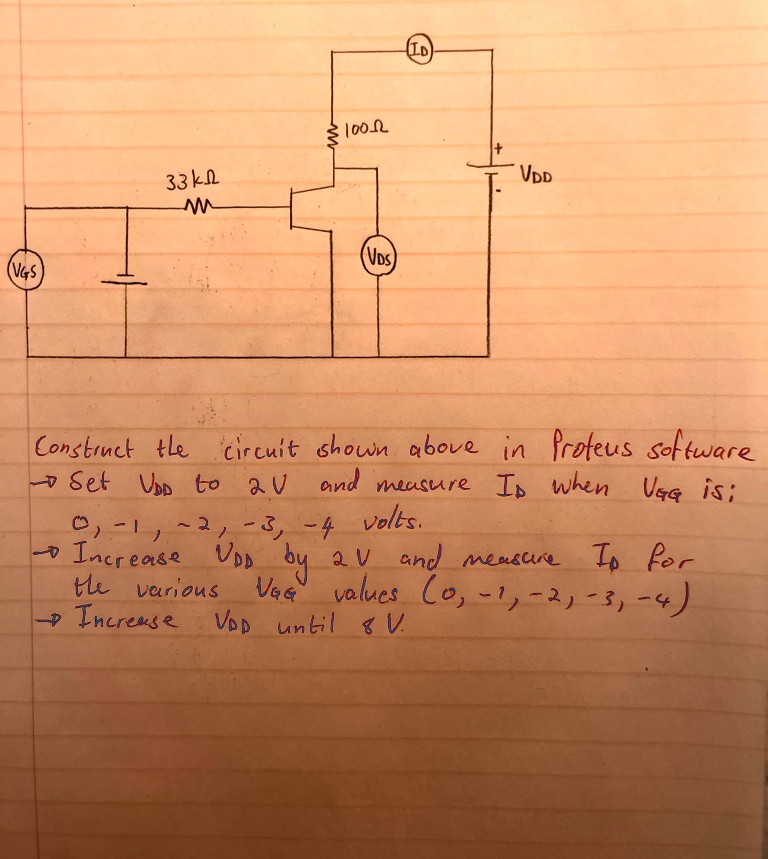 ID
100Ω
+
VDD
-
33kΩ
VGS
VDS
Construct the circuit shown above in Proteus software
→ Set VDD to 2V and measure ID when VGG is:
0, -1, -2, -3, -4 volts.
→ Increase VDD by 2V and measure ID for
the various VGG values (0, -1, -2, -3, -4)
→ Increase VDD until 8 V.